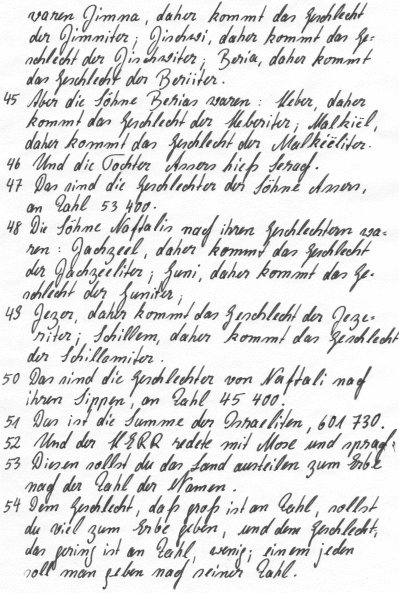 waren Jimna, daher kommt das Geschlecht
der Jimniter; Jischwi, daher kommt das Ge-
schlecht der Jischwiter; Beria, daher kommt
das Geschlecht der Beriiter.
45 Aber die Söhne Berias waren: Heber, daher
kommt das Geschlecht der Heberiter; Malkiël,
daher kommt das Geschlecht der Malkiëliter.
46 Und die Tochter Assers hieß Serach.
47 Das sind die Geschlechter der Söhne Assers,
an Zahl 53 400.
48 Die Söhne Naftalis nach ihren Geschlechtern wa-
ren: Jachzeel, daher kommt das Geschlecht
der Jachzeeliter; Guni, daher kommt das Ge-
schlecht der Guniter;
49 Jezer, daher kommt das Geschlecht der Jeze-
riter; Schillem, daher kommt das Geschlecht
der Schillemiter.
50 Das sind die Geschlechter von Naftali nach
ihren Sippen, an Zahl 45 400.
51 Das ist die Summe der Israeliten, 601 730.
52 Und der HERR redete mit Mose und sprach:
53 Diesen sollst du das Land austeilen zum Erbe
nach der Zahl der Namen.
54 Dem Geschlecht, daß groß ist an Zahl, sollst
du viel zum Erbe geben, und dem Geschlecht,
das gering ist an Zahl, wenig; einem jeden
soll man geben nach seiner Zahl.